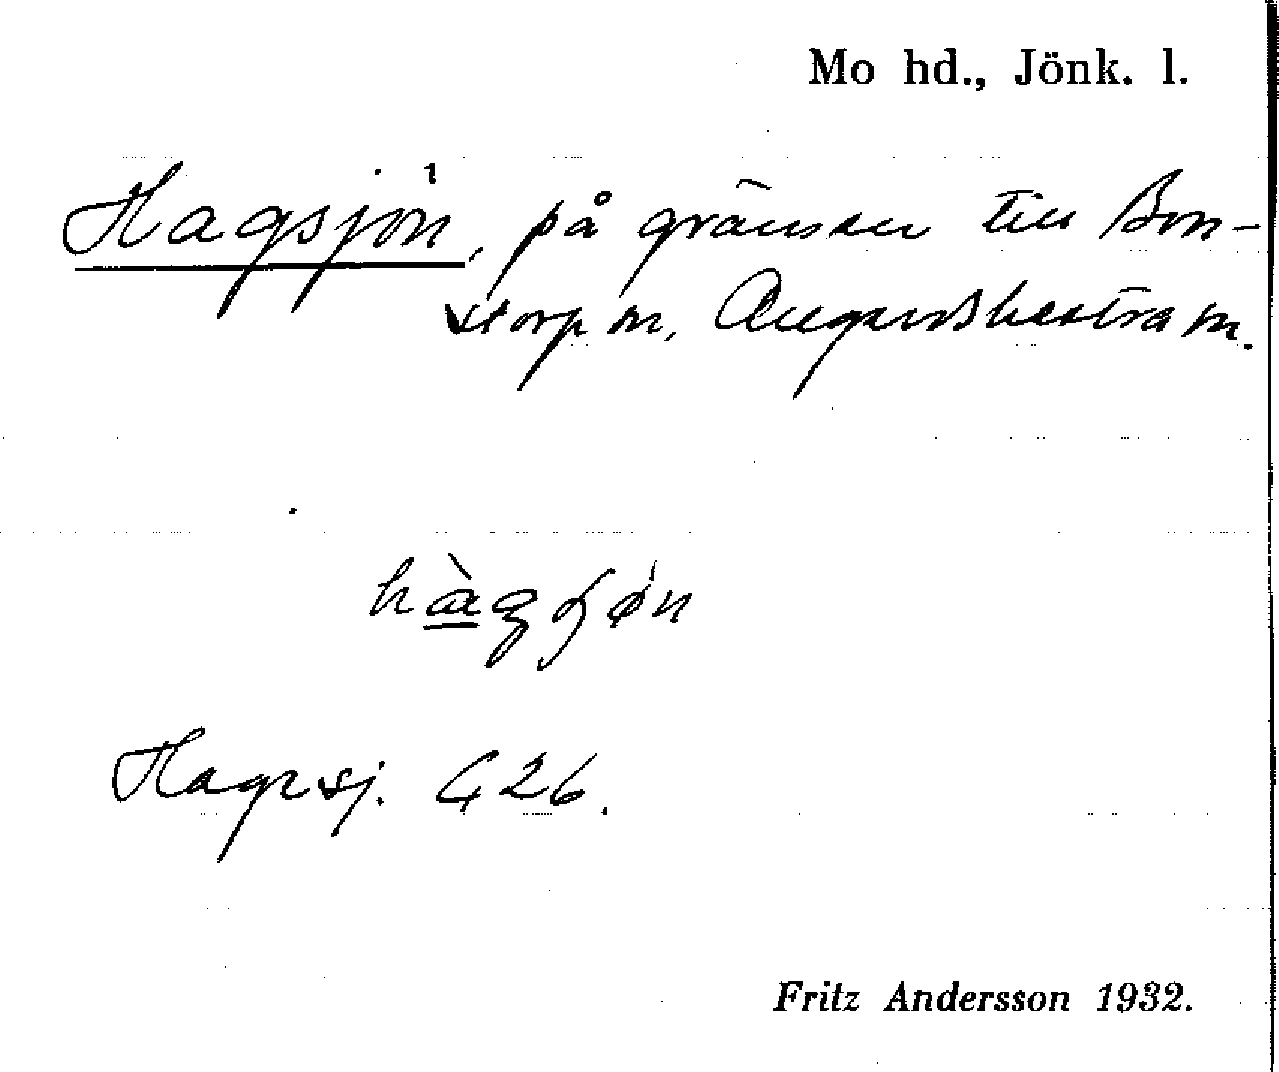 Mo hd., Jönk. l.
Hagsjön, på gränsen till Bon-
storp m, Augustbastra m.
hàgʃǿn
Hagesj. G 26.
Fritz Andersson 1932.